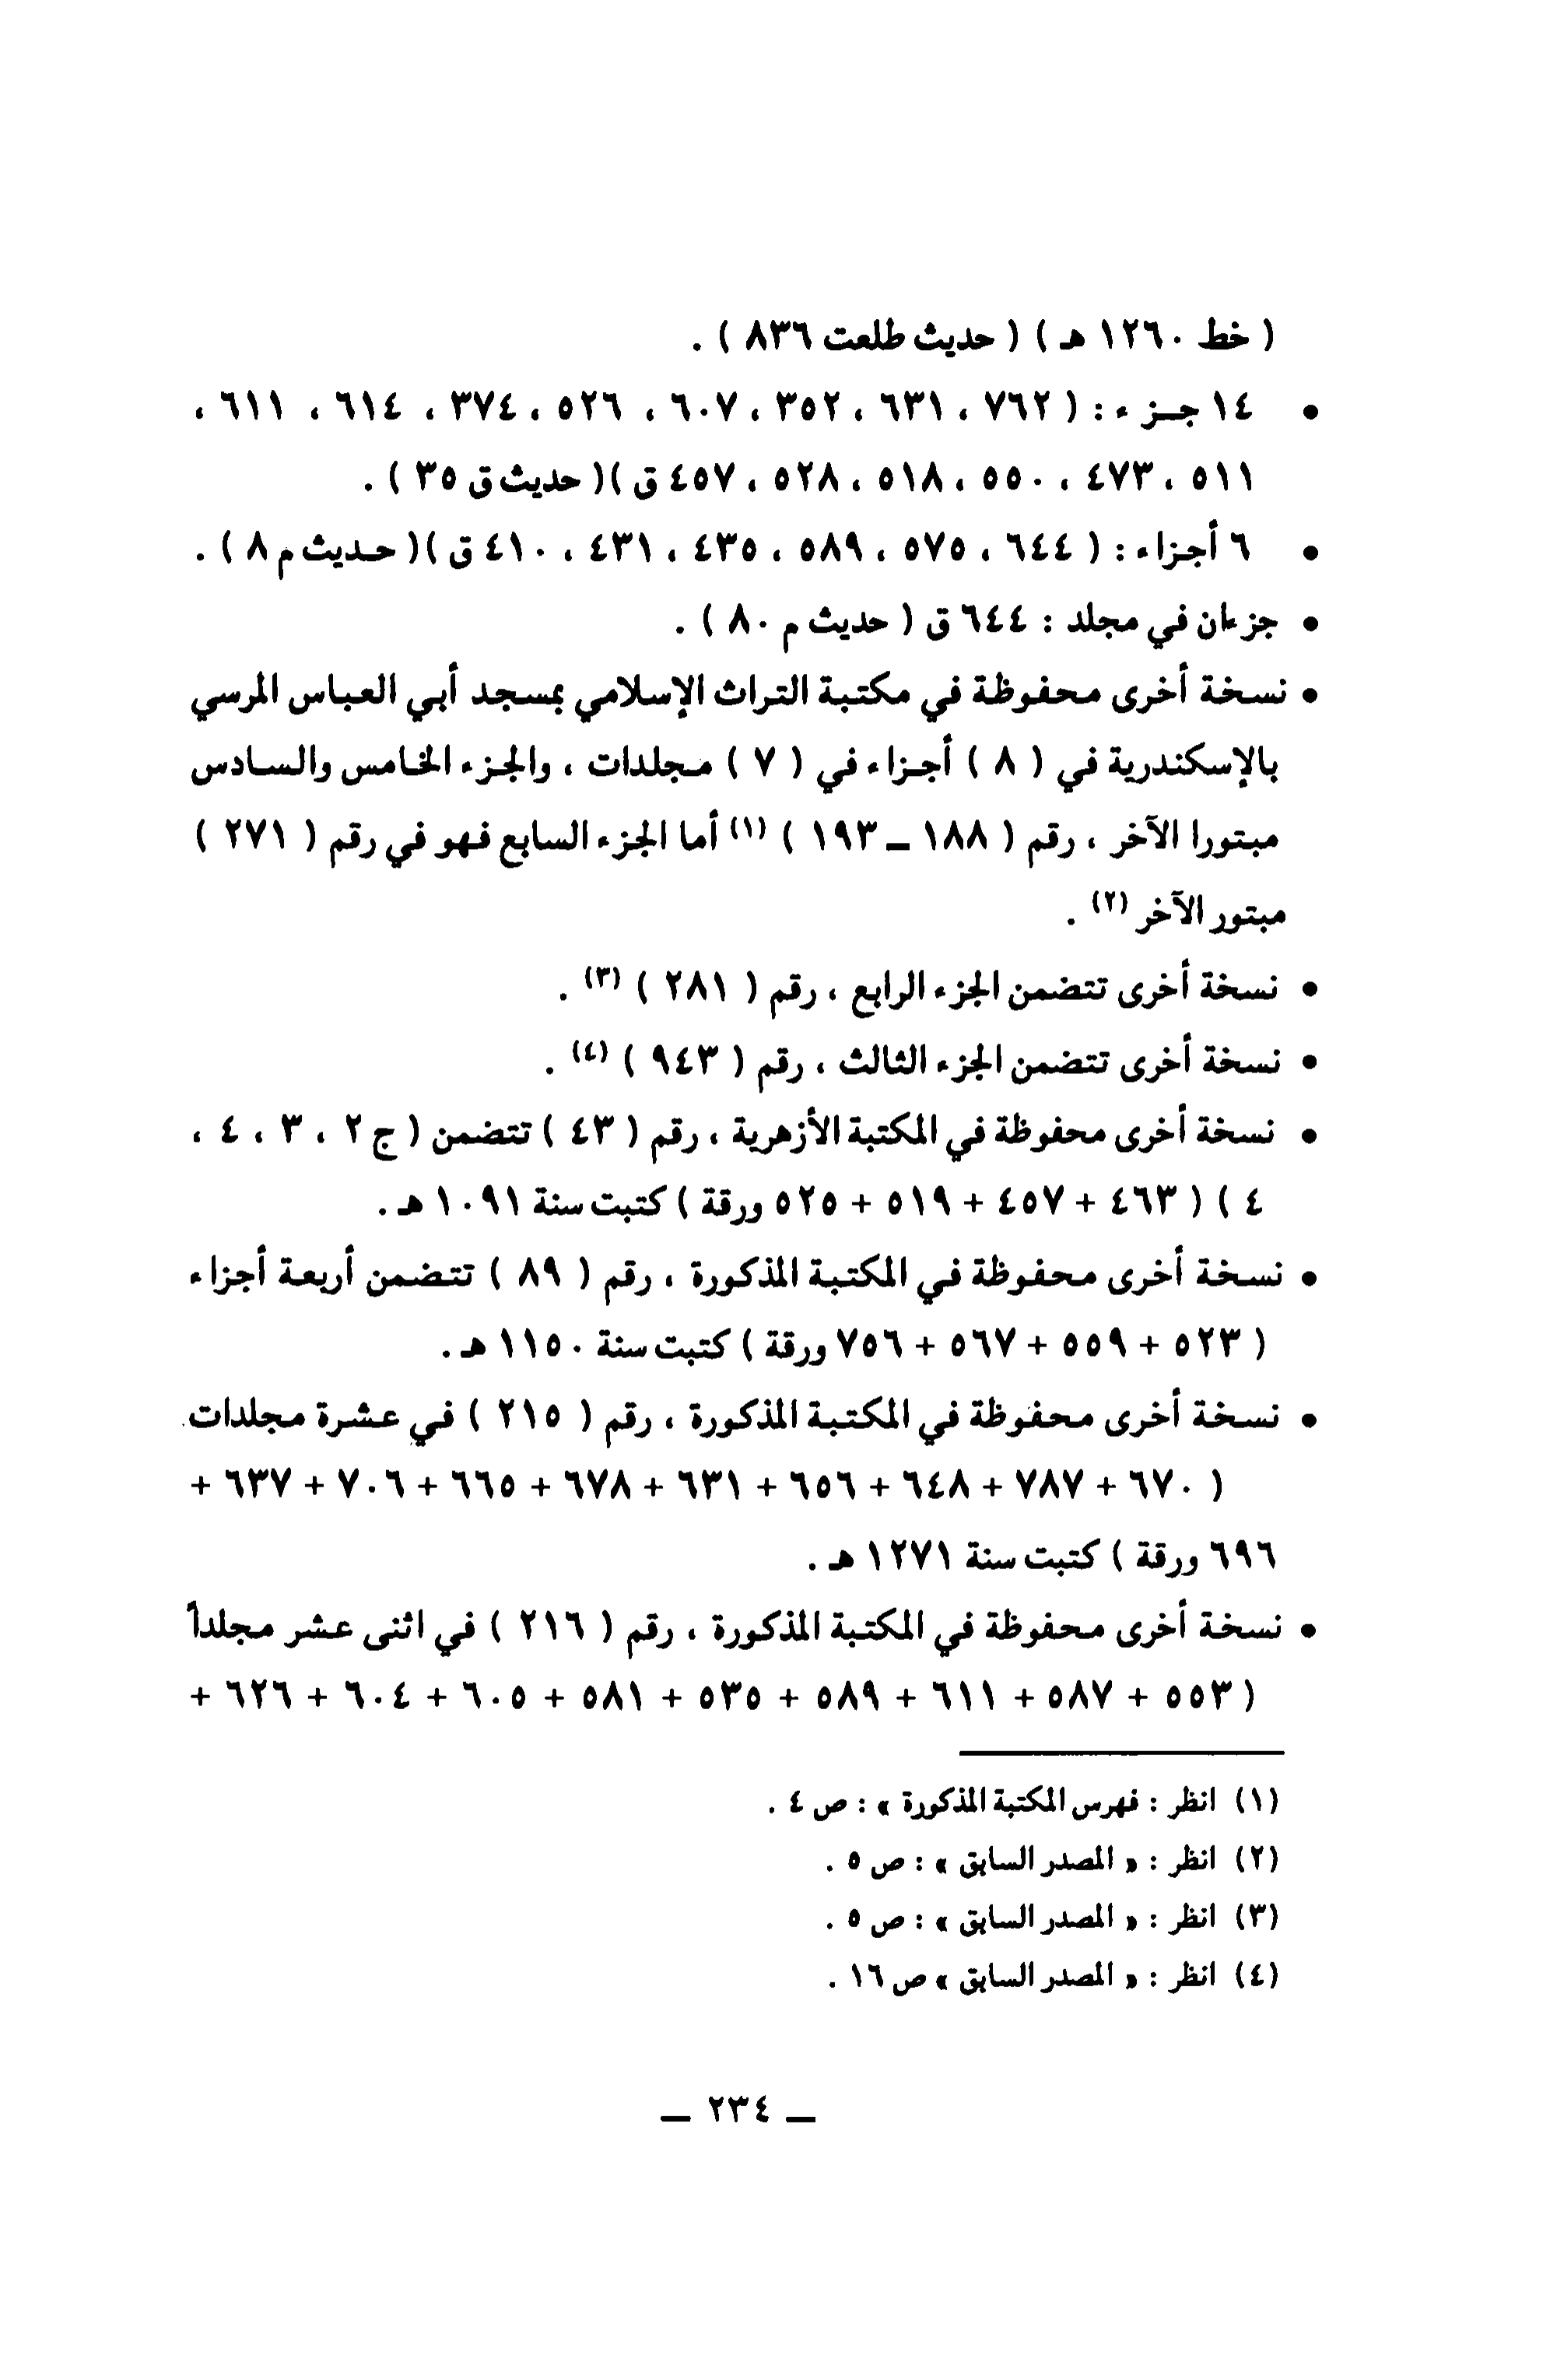 ( خط ١٢٦٠ هـ ) ( حديث طلعت ٨٣٦ ) .
• ١٤ جـزء : ( ٧٦٢ ، ٦٣١ ، ٣٥٢ ، ٦٠٧ ، ٥٢٦ ، ٣٧٤ ، ٦١٤ ، ٦١١ ،
٥١١ ، ٤٧٣ ، ٥٥٠ ، ٥١٨ ، ٥٢٨ ، ٤٥٧ ق )( حديث ق ٣٥ ) .
• ٦ أجزاء : ( ٦٤٤ ، ٥٧٥ ، ٥٨٩ ، ٤٣٥ ، ٤٣١ ، ٤١٠ ق )( حـديث م ٨ ) .
• جزءان في مجلد : ٦٤٤ ق ( حديث م ٨٠ ) .
• نسخة أخرى محفوظة في مكتبة التراث الإسلامي بمسجد أبي العباس المرسي
بالإسكندرية في ( ٨ ) أجـزاء في ( ٧ ) مـجلدات ، والجـزء الخـامس والسـادس
مبتورا الآخر ، رقم ( ١٨٨ ــ ١٩٣ ) (١) أما الجزء السابع فهو في رقم ( ٢٧١ )
مبتور الآخر (٢) .
• نسخة أخرى تتضمن الجزء الرابع ، رقم ( ٢٨١ ) (٣) .
• نسخة أخرى تتضمن الجزء الثالث ، رقم ( ٩٤٣ ) (٤) .
• نسخة أخرى محفوظة في المكتبة الأزهرية ، رقم ( ٤٣ ) تتضمن ( ج ٢ ، ٣ ، ٤ ،
٤ ) ( ٤٦٣ + ٤٥٧ + ٥١٩ + ٥٢٥ ورقة ) كتبت سنة ١٠٩١ هـ .
• نسخة أخرى محفوظة في المكتبة المذكورة ، رقم ( ٨٩ ) تتضمن أربعة أجزاء
( ٥٢٣ + ٥٥٩ + ٥٦٧ + ٧٥٦ ورقة ) كتبت سنة ١١٥٠ هـ .
• نسخة أخرى محفوظة في المكتبة المذكورة ، رقم ( ٢١٥ ) في عشرة مجلدات
( ٦٧٠ + ٧٨٧ + ٦٤٨ + ٦٥٦ + ٦٣١ + ٦٧٨ + ٦٦٥ + ٧٠٦ + ٦٣٧ +
٦٩٦ ورقة ) كتبت سنة ١٢٧١ هـ .
• نسخة أخرى محفوظة في المكتبة المذكورة ، رقم ( ٢١٦ ) في اثنى عشر مجلداً
( ٥٥٣ + ٥٨٧ + ٦١١ + ٥٨٩ + ٥٣٥ + ٥٨١ + ٦٠٥ + ٦٠٤ + ٦٢٦ +
(١) انظر : فهرس المكتبة المذكورة » : ص ٤ .
(٢) انظر : « المصدر السابق » : ص ٥ .
(٣) انظر : « المصدر السابق » : ص ٥ .
(٤) انظر : « المصدر السابق » ص ١٦ .
ــ ٢٣٤ ــ